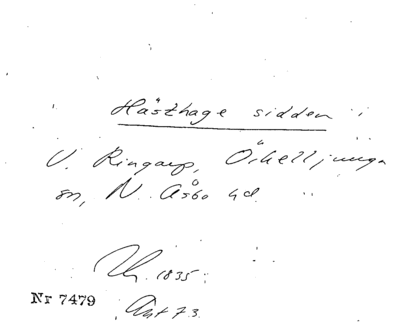 Hästhage sidden
V. Ringarp, Örkelljunga
sn, N. Åsbo hd.
1835.
Nr 7479
Ant 73.